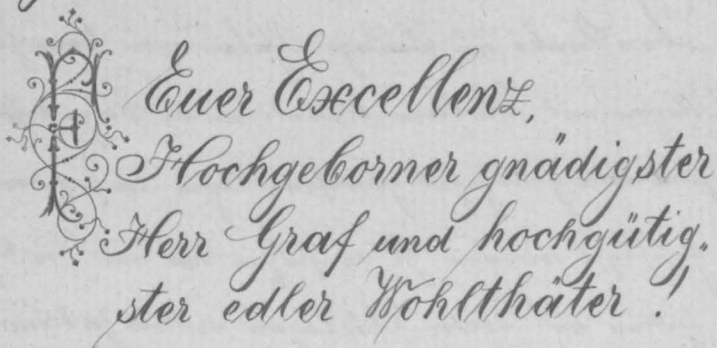 Euer Excellenz,
Hochgeborner gnädigster
Herr Graf und hochgütig-
ster edler Wohlthäter!